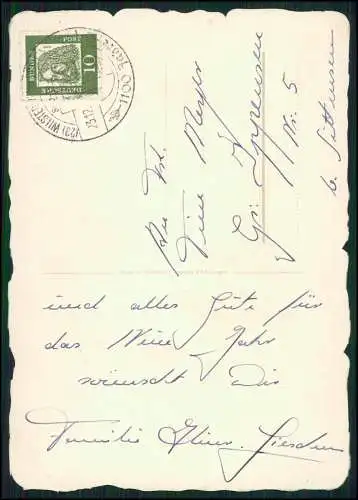 DEUTSCHE
BUNDESPOST
10
(23) WILSTEDT
23.12.
-11 00
An Frl.
Tine Meyer
Gr. Ippensen
Nr. 5
b. Sittensen
und alles Gute für
das Neue Jahr
wünscht Dir
Familie